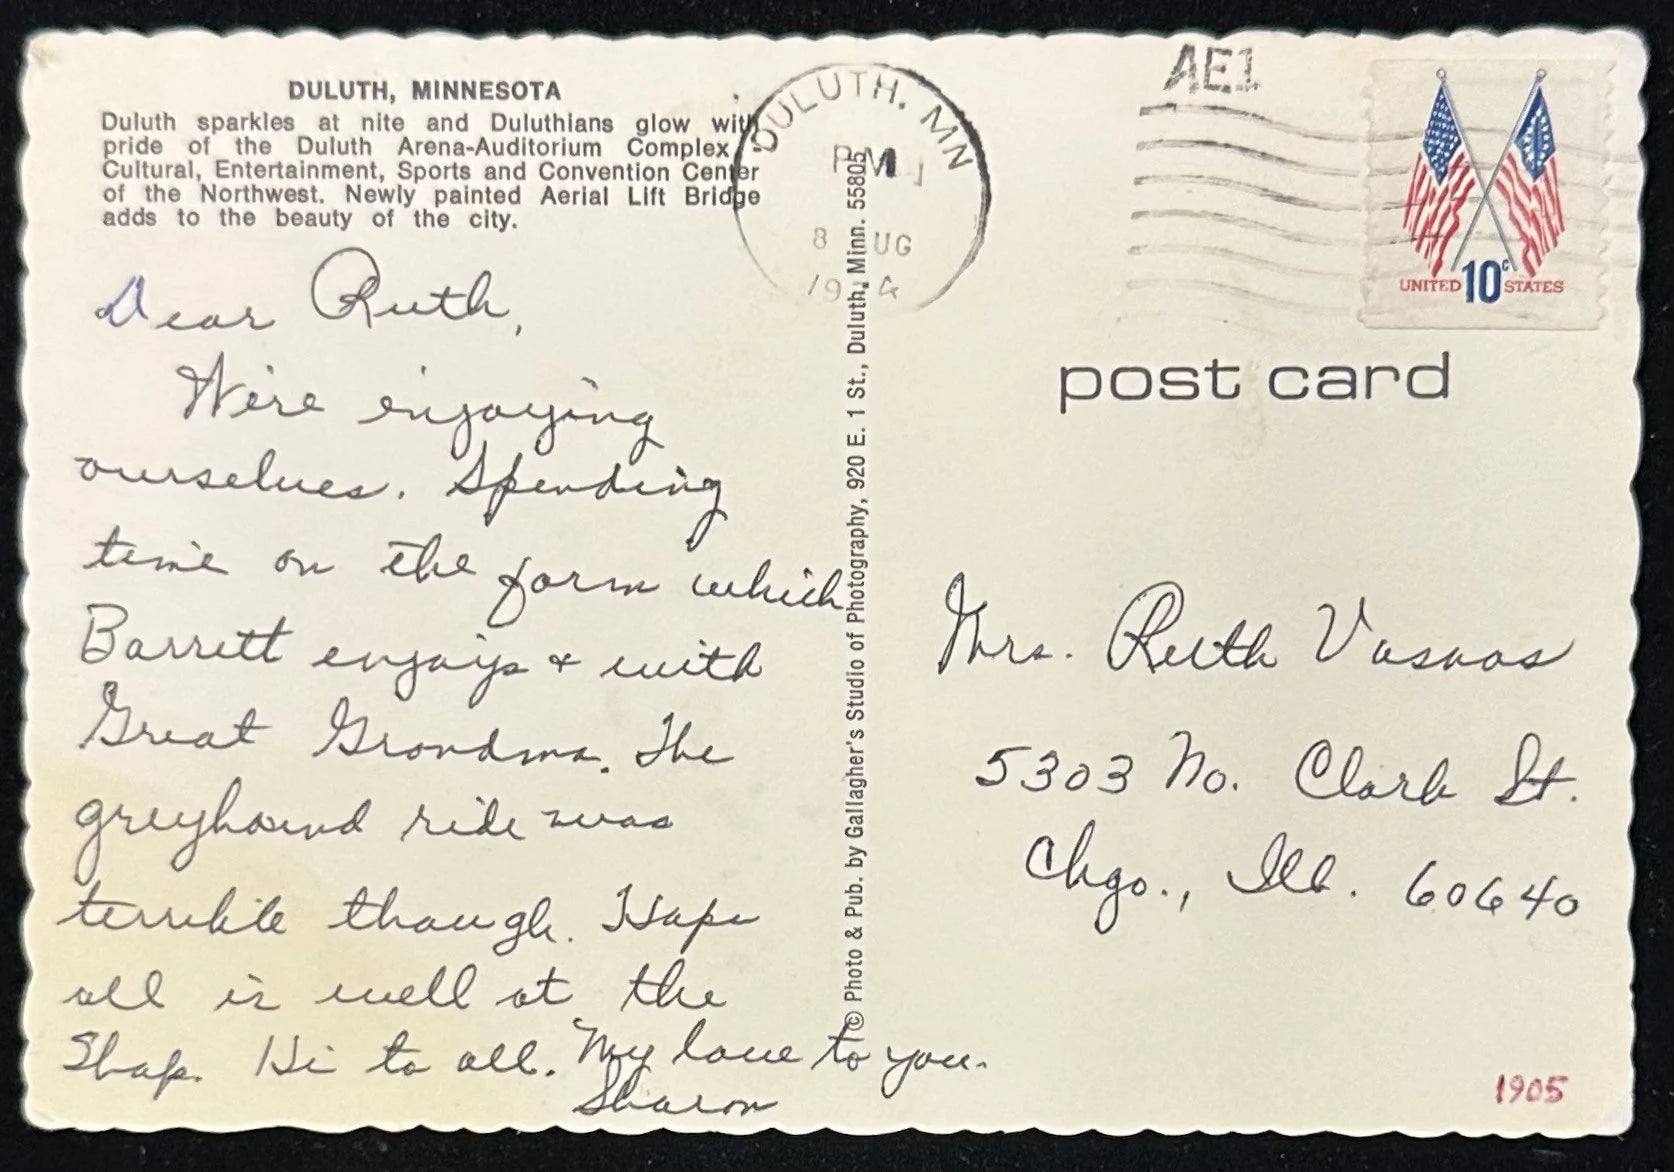 DULUTH, MINNESOTA
Duluth sparkles at nite and Duluthians glow with
pride of the Duluth Arena-Auditorium Complex -
Cultural, Entertainment, Sports and Convention Center
of the Northwest. Newly painted Aerial Lift Bridge
adds to the beauty of the city.
Dear Ruth,
We're enjoying
ourselves. Spending
time on the farm which
Barrett enjoys + with
Great Grandma. The
greyhound ride was
terrible though. Hope
all is well at the
Shop. Hi to all. My love to you.
Sharon
© Photo & Pub. by Gallagher's Studio of Photography, 920 E. 1 St., Duluth, Minn. 55805
DULUTH. MN
PM
8 UG
19 4
AE1
UNITED 10c STATES
post card
Mrs. Ruth
5303 No. Clark St.
Chgo., Ill. 60640
1905